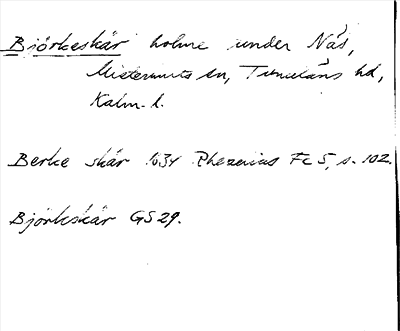 Björkeskär holme under Näs,
Misterhults sn, Tunaläns hd,
Kalm. l.
Berke skär 1634 Rhezenius Fc 5, s. 102.
Björkskär GS 29.